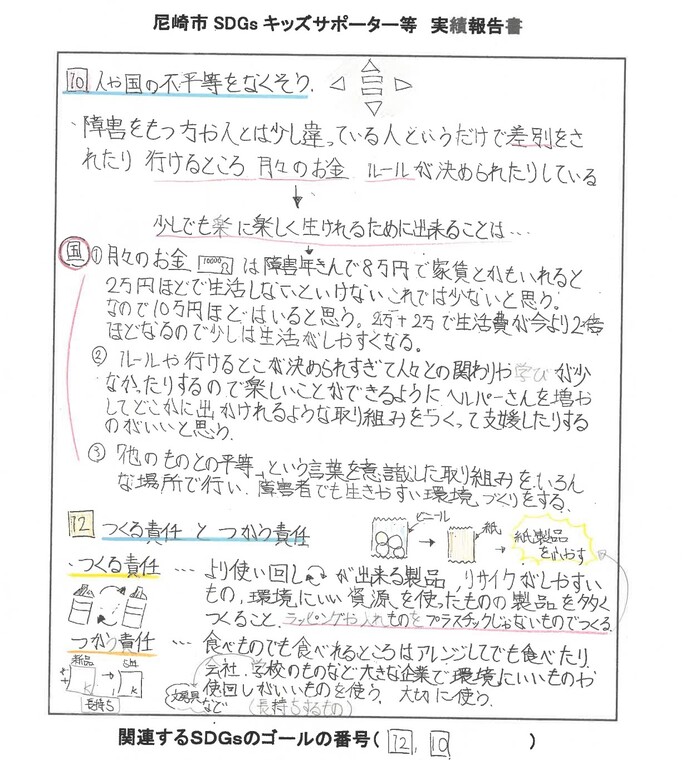 尼崎市 SDGs キッズサポーター等 実績報告書
10 人や国の不平等をなくそう.
・障害をもつ方や人とは少し違っている人というだけで差別をさ
れたり 行けるところ 月々のお金 ルールが決められたりしている
少しでも楽に楽しく生けれるために出来ることは…
国
①月々のお金 10000 は障害年きんで8万円で家賃とかもいれると
2万円ほどで生活しないといけないこれでは少ないと思う。
なので10万円ほどはいると思う。2万+2万で生活費が今より2倍
ほどなるので少しは生活がしやすくなる。
② ルールや行けるとこが決められすぎて人々との関わりや学びが少
なかったりするので楽しいことができるようにヘルパーさんを増や
してどこかに出かけれるような取り組みをつくって支援したりする
のがいいと思う.
③ 他のものとの平等 という言葉を意識した取り組みをいろん
な場所で行い. 障害者でも生きやすい環境づくりをする.
12 つくる責任 と つかう責任
ビニール
紙
紙製品をふやす
・つくる責任 … より使い回し が出来る製品, リサイクルがしやすい
もの, 環境にいい資源を使ったものの製品を多く
つくること. ラッピングや入れものをプラスチックじゃないものでつくる.
つかう責任 … 食べものでも食べれるところはアレンジしてでも食べたり
会社. 学校のものなど大きな企業で環境にいいものか
使回しがいいものを使う. 大切に使う.
新品
長持ち
文房具など
(長持ちするもの)
関連するSDGsのゴールの番号( 12, 10 )